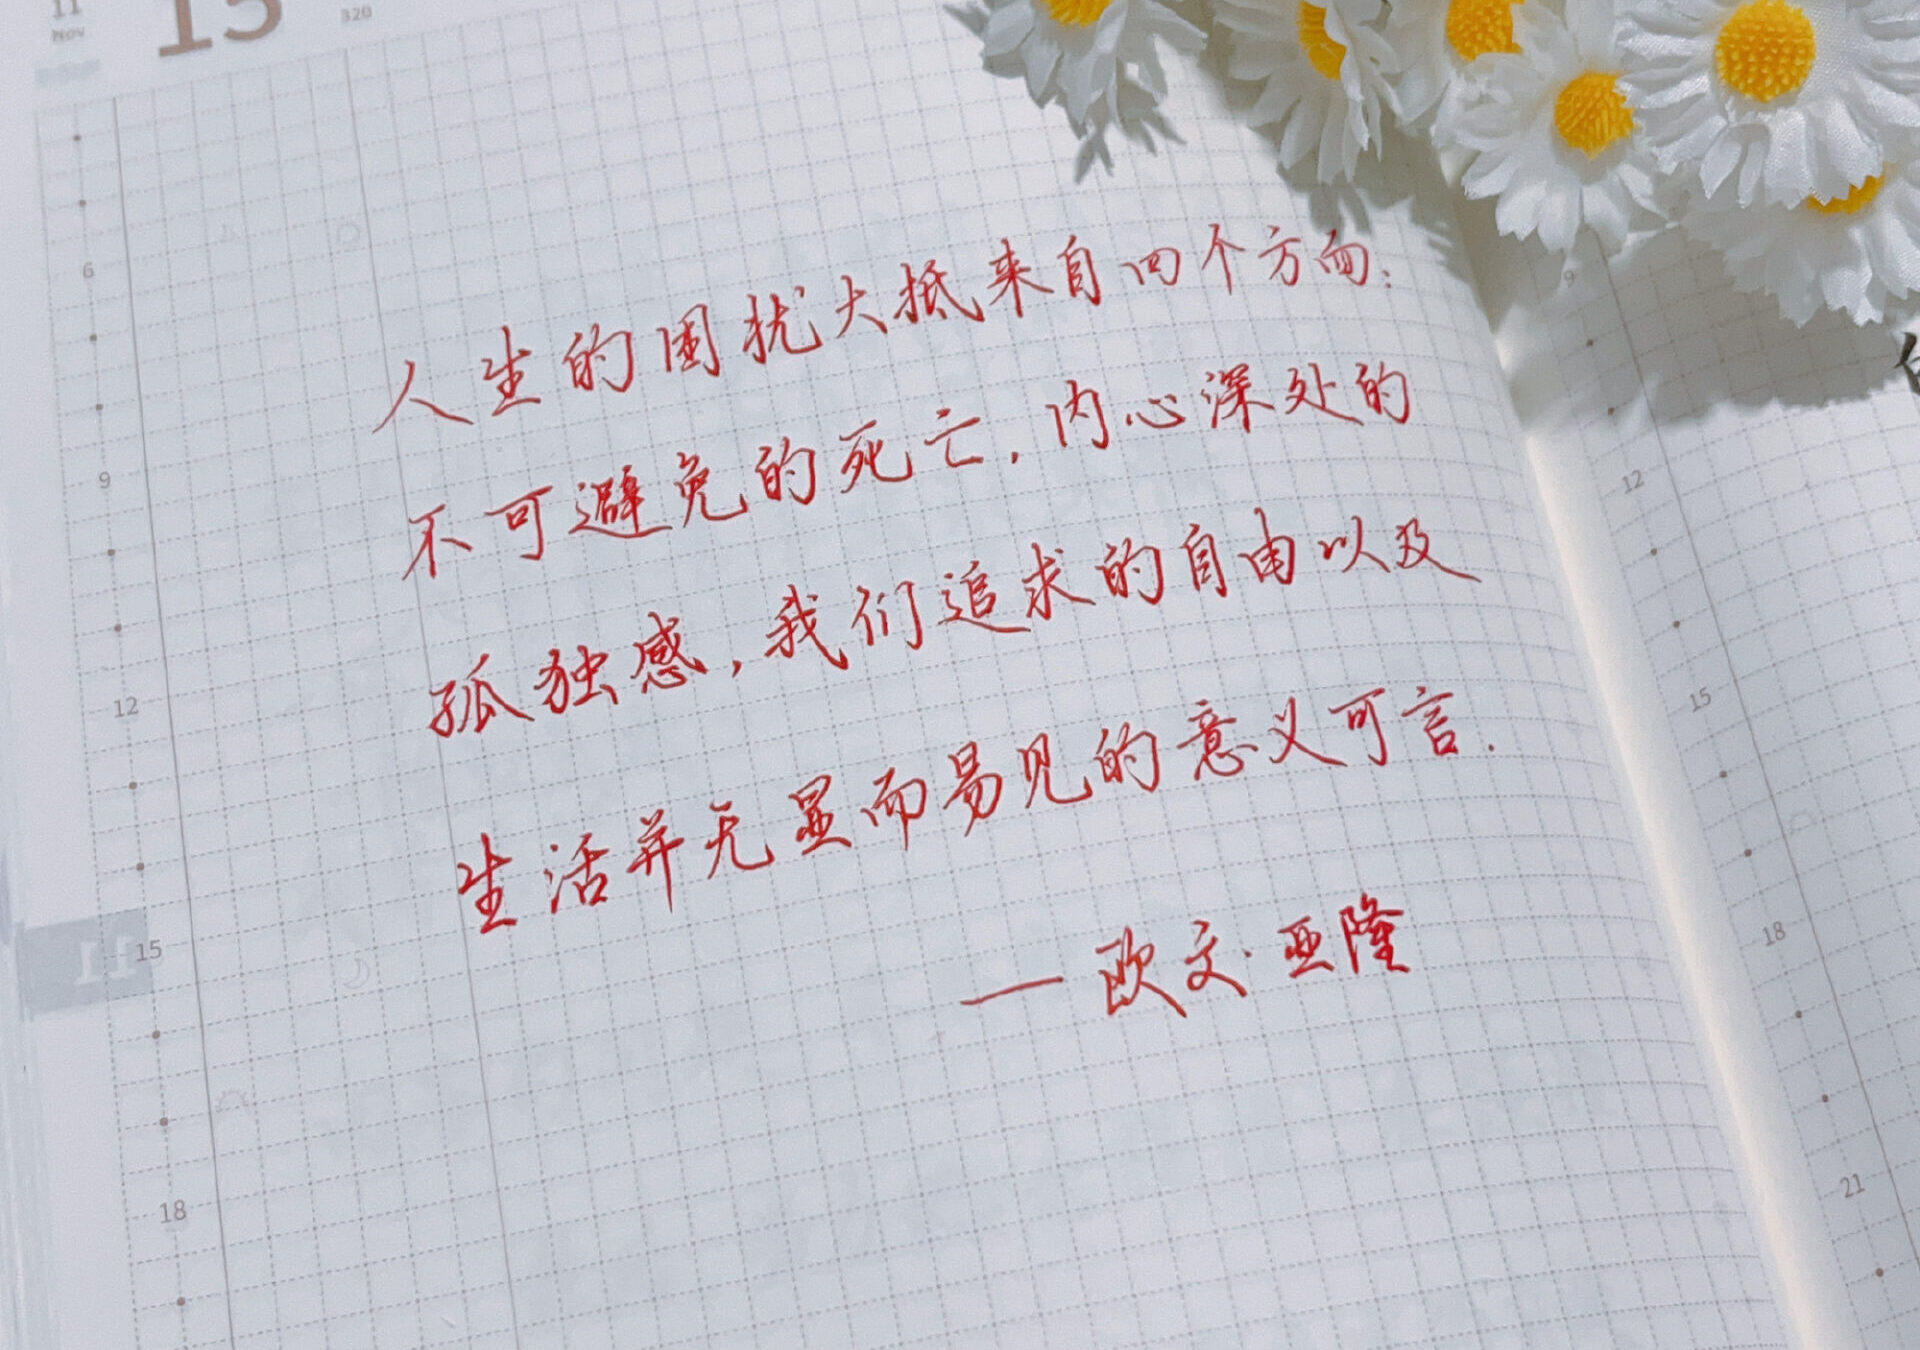 11
NOV
15
320
人生的困扰大抵来自四个方面:
不可避免的死亡,内心深处的
孤独感,我们追求的自由以及
生活并无显而易见的意义可言.
—欧文·亚隆
6
9
12
15
18
11
9
12
15
18
21